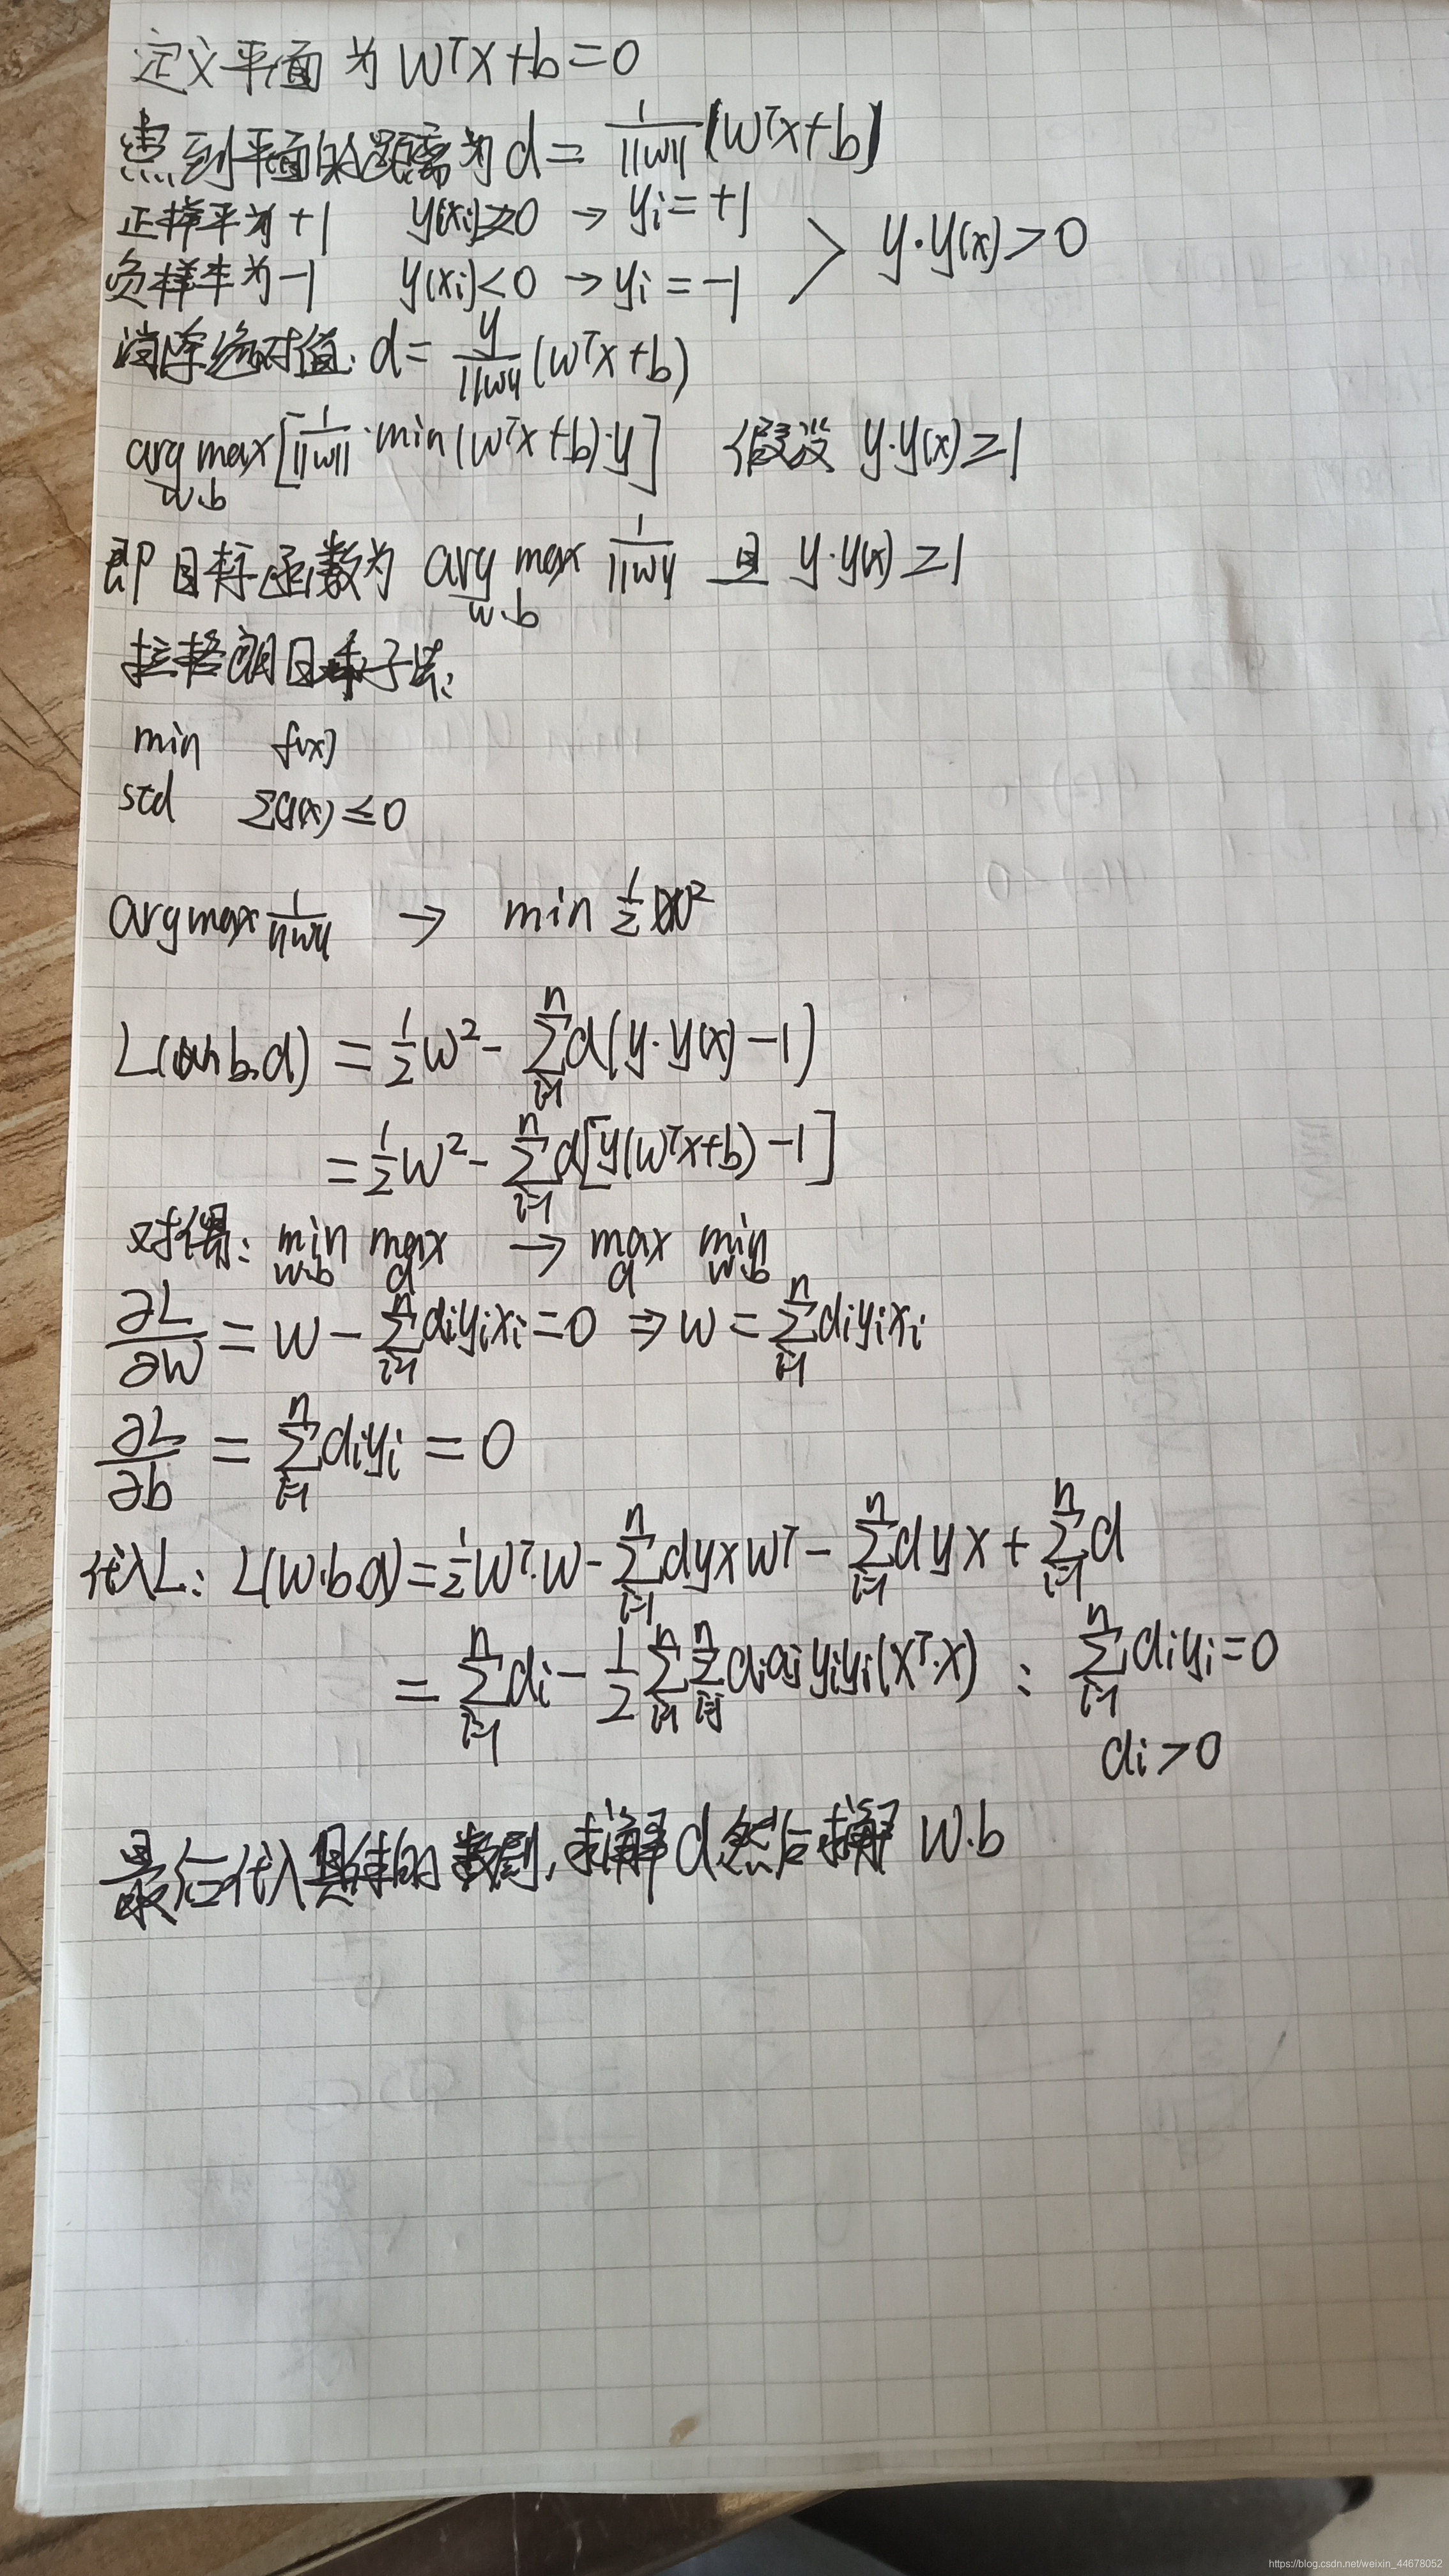 定义平面为 WᵀX+b=0
点到平面的距离为 d = 1/||w|| |WᵀX+b|
正样本为+1 y(xi)≥0 → yi=+1
负样本为-1 y(xi)<0 → yi=-1 > y·y(x)>0
消除绝对值: d = y/||w|| (WᵀX+b)
arg max w.b [1/||w|| · min(WᵀX+b)·y] 假设 y·y(x)≥1
即目标函数为 arg max w.b 1/||w|| 且 y·y(x)≥1
拉格朗日乘子法:
min f(x)
std Σg(x)≤0
argmax 1/||w|| → min ½W²
L(w.b.α) = ½W² - Σⁿᵢ₌₁α(y·y(x)-1)
= ½W² - Σⁿᵢ₌₁α[y(WᵀX+b)-1]
对偶: min w.b max α → max α min w.b
∂L/∂W = W - Σⁿᵢ₌₁αiyixi = 0 ⇒ W = Σⁿᵢ₌₁αiyixi
∂L/∂b = Σⁿᵢ₌₁αiyi = 0
代入L: L(W.b.α) = ½Wᵀ·W - Σⁿᵢ₌₁αyxWᵀ - Σⁿᵢ₌₁αyx + Σⁿᵢ₌₁α
= Σⁿᵢ₌₁αi - ½ΣⁿΣⁿαiαjyiyi(Xᵀ·X) : Σⁿᵢ₌₁αiyi=0
αi>0
最后代入具体的数剧, 求解α然后求解 W.b
https://blog.csdn.net/weixin_44678052